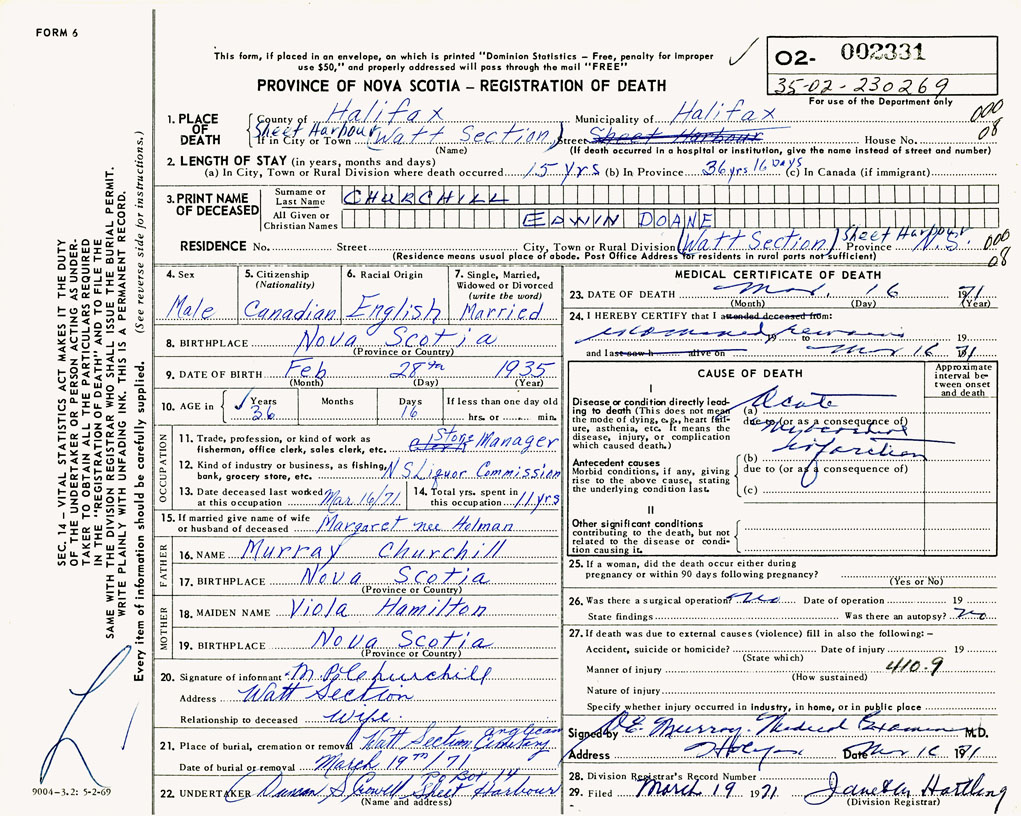 FORM 6
This form, if placed in an envelope, on which is printed "Dominion Statistics – Free, penalty for improper
use $50," and properly addressed will pass through the mail "FREE"
PROVINCE OF NOVA SCOTIA – REGISTRATION OF DEATH
O2- 002331
35-02-230269
For use of the Department only
1. PLACE OF DEATH County of Halifax Municipality of Halifax 000
Sheet Harbour If in City or Town (Watt Section) Street Sheet Harbour House No. 08
(Name) (If death occurred in a hospital or institution, give the name instead of street and number)
2. LENGTH OF STAY (in years, months and days)
(a) In City, Town or Rural Division where death occurred 15 yrs (b) In Province 36 yrs 16 Days (c) In Canada (if immigrant)
3. PRINT NAME OF DECEASED Surname or Last Name CHURCHILL
All Given or Christian Names EDWIN DOANE
RESIDENCE No. Street City, Town or Rural Division (Watt Section) Sheet Harbour Province N.S. 000
(Residence means usual place of abode. Post Office Address for residents in rural parts not sufficient) 08
4. Sex Male
5. Citizenship (Nationality) Canadian
6. Racial Origin English
7. Single, Married, Widowed or Divorced (write the word) Married
8. BIRTHPLACE Nova Scotia
(Province or Country)
9. DATE OF BIRTH Feb 28th 1935
(Month) (Day) (Year)
10. AGE in Years 36 Months Days 16 If less than one day old hrs. or min.
OCCUPATION
11. Trade, profession, or kind of work as fisherman, office clerk, sales clerk, etc. Store Manager
12. Kind of industry or business, as fishing, bank, grocery store, etc. N S Liquor Commission
13. Date deceased last worked at this occupation Mar 16/71
14. Total yrs. spent in this occupation 11 yrs
15. If married give name of wife or husband of deceased Margaret nee Holman
FATHER
16. NAME Murray Churchill
17. BIRTHPLACE Nova Scotia
(Province or Country)
MOTHER
18. MAIDEN NAME Viola Hamilton
19. BIRTHPLACE Nova Scotia
(Province or Country)
20. Signature of informant Churchill
Address Watt Section
Relationship to deceased Wife
21. Place of burial, cremation or removal Watt Section Anglican Cemetery
Date of burial or removal March 19th/71
22. UNDERTAKER Duncan S Crowell PO Box 14 Sheet Harbour
(Name and address)
MEDICAL CERTIFICATE OF DEATH
23. DATE OF DEATH Mar. 16 1971
(Month) (Day) (Year)
24. I HEREBY CERTIFY that I attended deceased from:
examined remains 19 to 19
and last saw h alive on Mar 16 71
CAUSE OF DEATH
Approximate interval between onset and death
I
Disease or condition directly leading to death (This does not mean the mode of dying, e.g., heart failure, asthenia, etc. It means the disease, injury, or complication which caused death.)
(a) Acute
due to (or as a consequence of)
Myocardial
(b) Infarction
due to (or as a consequence of)
(c)
Antecedent causes
Morbid conditions, if any, giving rise to the above cause, stating the underlying condition last.
II
Other significant conditions contributing to the death, but not related to the disease or condition causing it.
25. If a woman, did the death occur either during pregnancy or within 90 days following pregnancy?
(Yes or No)
26. Was there a surgical operation? No Date of operation 19
State findings Was there an autopsy? No
27. If death was due to external causes (violence) fill in also the following: –
Accident, suicide or homicide? Date of injury 19
(State which)
Manner of injury 410.9
(How sustained)
Nature of injury
Specify whether injury occurred in industry, in home, or in public place
Signed by D.E. Murray. Medical Examiner M.D.
Address Date Mar 16 1971
28. Division Registrar's Record Number
29. Filed March 19 1971 Hartling
(Division Registrar)
SEC. 14 – VITAL STATISTICS ACT MAKES IT THE DUTY
OF THE UNDERTAKER OR PERSON ACTING AS UNDER-
TAKER TO OBTAIN ALL THE PARTICULARS REQUIRED
IN THE "REGISTRATION OF DEATH" AND TO FILE THE
SAME WITH THE DIVISION REGISTRAR WHO SHALL ISSUE THE BURIAL PERMIT.
WRITE PLAINLY WITH UNFADING INK. THIS IS A PERMANENT RECORD.
Every item of information should be carefully supplied. (See reverse side for instructions.)
9004-3.2: 5-2-69